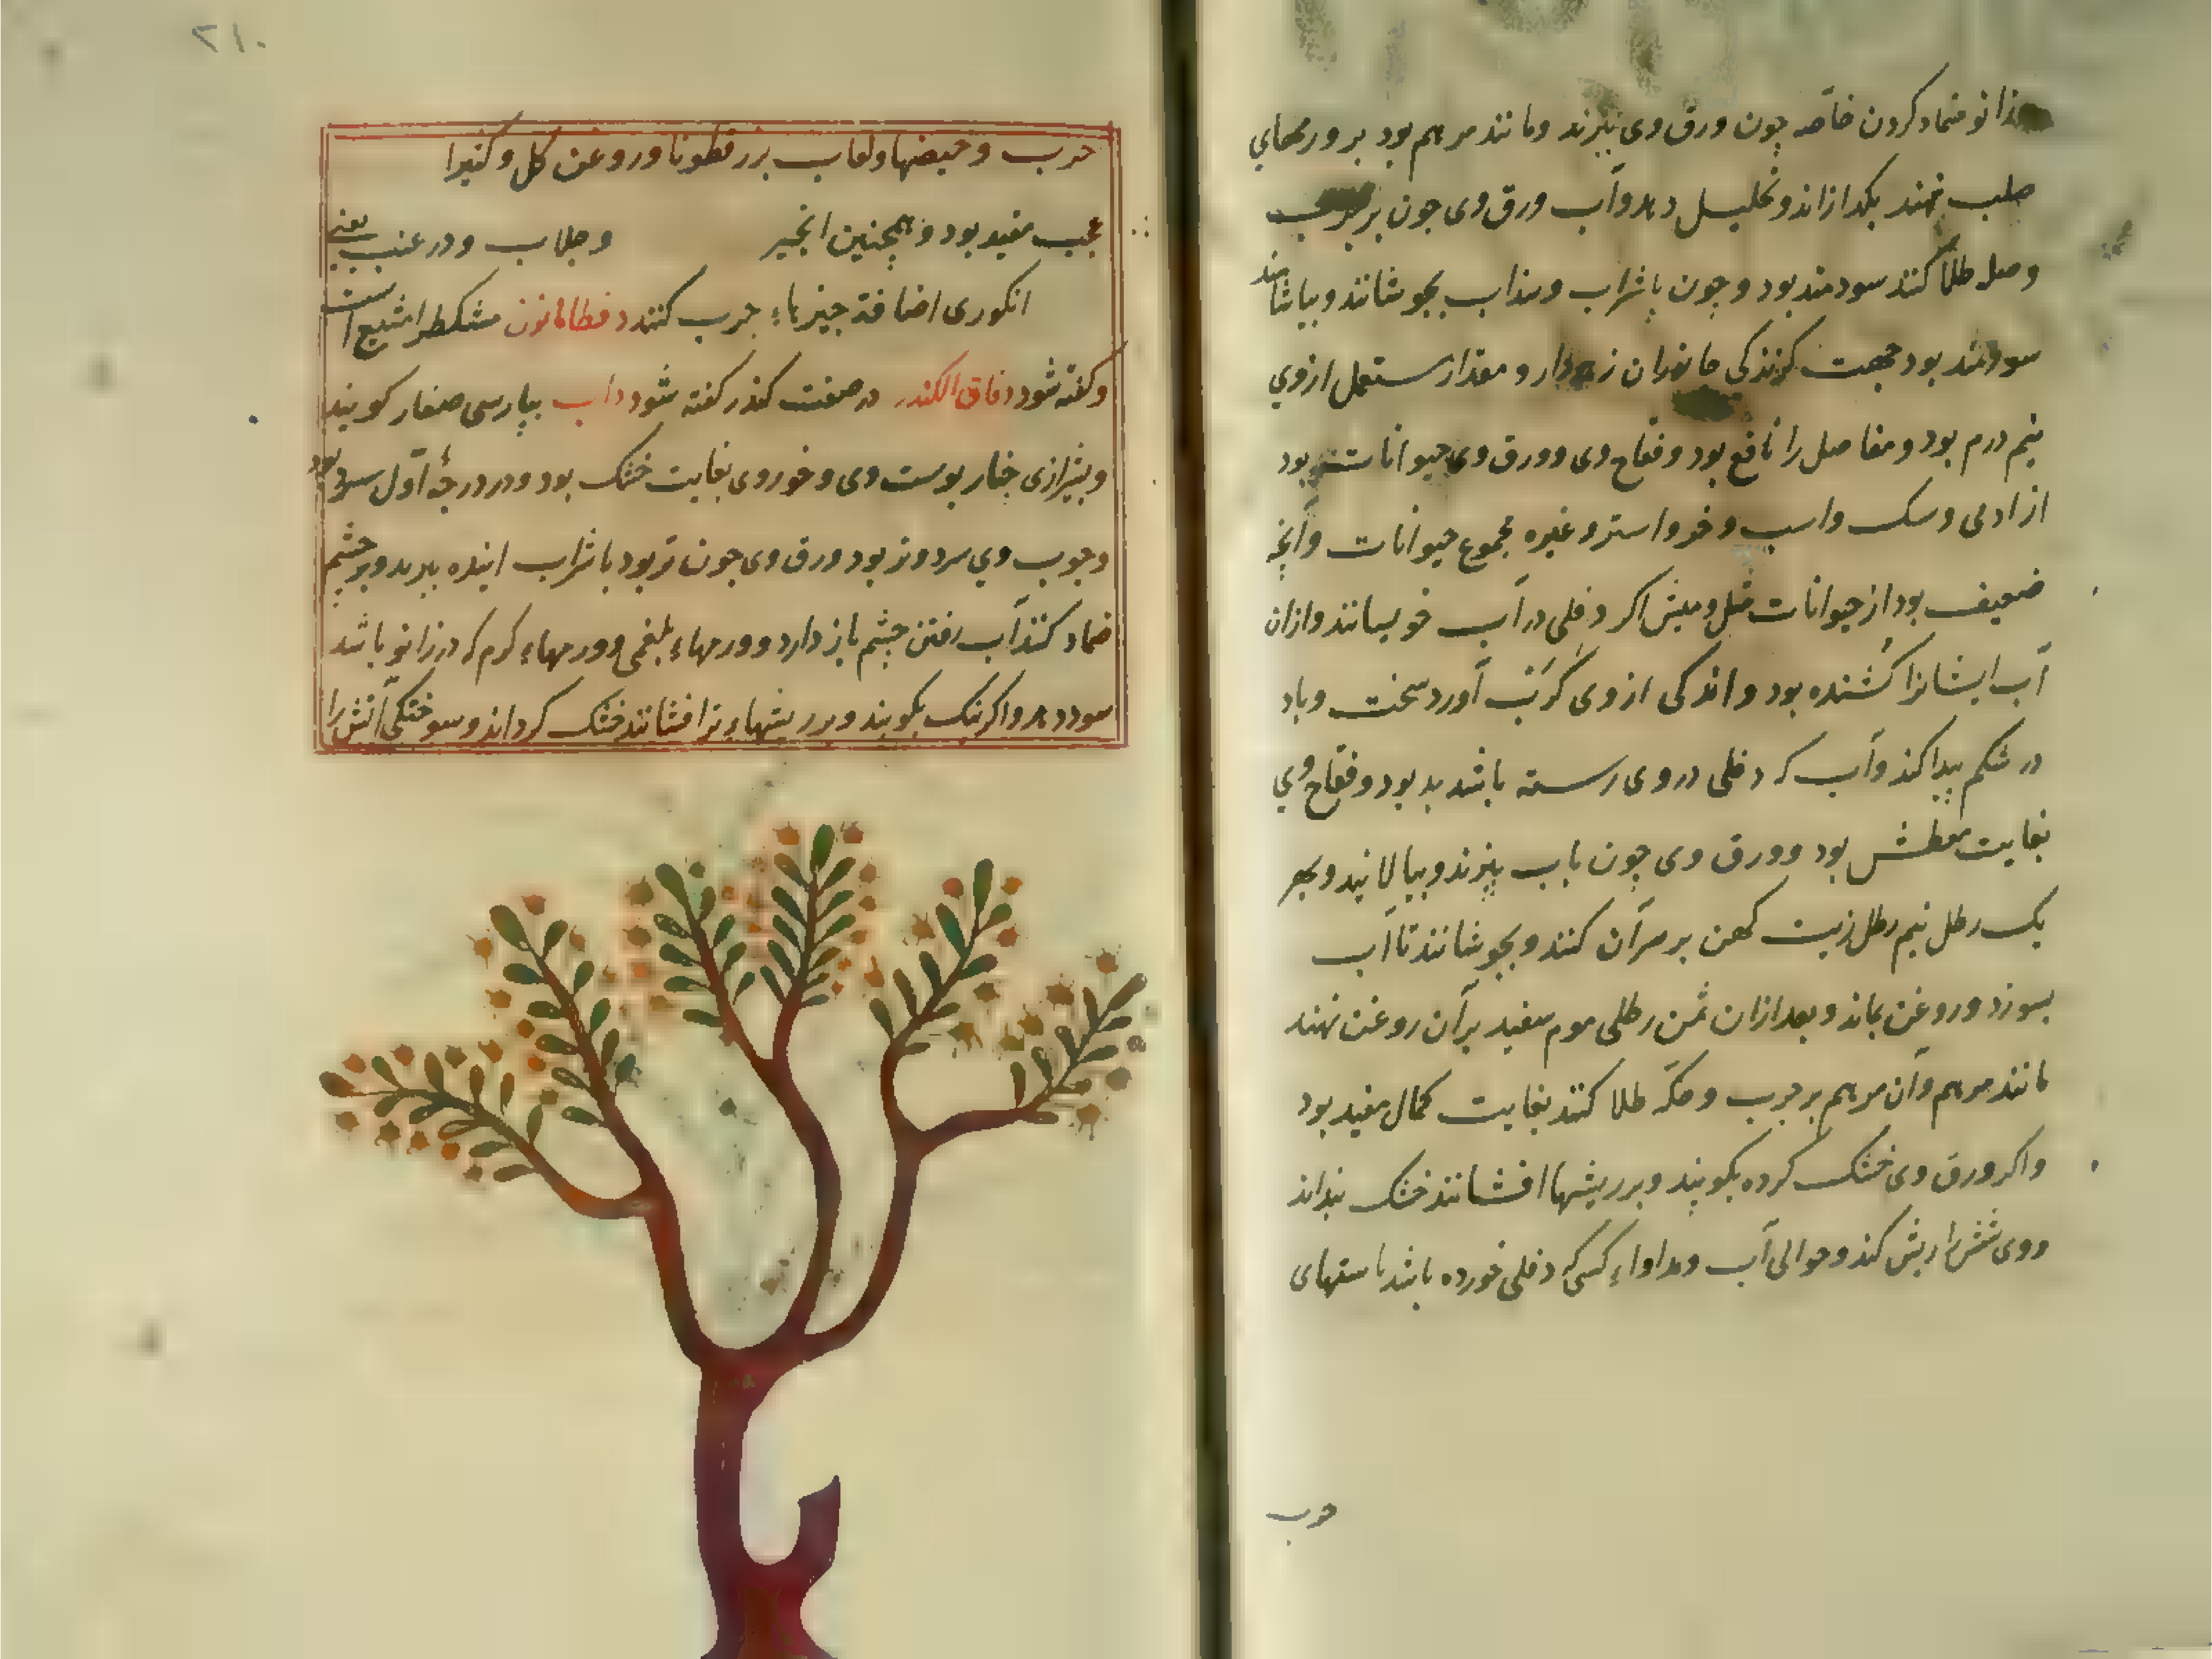 زانو ضماد کردن خاصّه چون ورق وی بپزند ومانند مرهم بود بر ورمهای
صلب نهند بکدازاند و تحلیل دهد وآب ورق وی چون بر جرب
وصل طلا کنند سودمند بود وچون با شراب وسداب بجوشانند وبیاشامند
سودمند بود جهت کزندکی جانوران زهردار و مقدار مستعمل ازوی
نیم درم بود و مفاصل را نافع بود وفقاح وی وورق وی حیوانات بود
از ادمی وسک واسب وخر واستر وغیره مجموع حیوانات وآنچه
ضعیف بود از حیوانات مثل ومیش اکر دفلی در آب خویسانند وازان
آب ایشانرا کشنده بود واندکی از وی کرب آورد سخت وباد
در شکم پیدا کند وآب که دفلی در وی رسته باشد بد بود وفقاح وی
بغایت معطش بود وورق وی چون باب بپزند وبپالانید وبهر
یک رطل نیم رطل زیت کهن بر سر آن کنند وبجوشانند تا آب
بسوزد وروغن بماند وبعد ازان ثمن رطلی موم سفید بر آن روغن نهند
مانند مرهم وآن مرهم بر جرب وحکّه طلا کنند بغایت کمال مفید بود
واکر ورق وی خشک کرده بکوبند وبر ریشها افشانند خشک بنداند
ووی شش را ریش کند وحوالی آب ومداواء کسی که دفلی خورده باشد باستهای
حرب
۲۱۰
حرب وحیضها ولعاب بزرقطونا وروغن کل وکتیرا
عجیب مفید بود وهمچنین انجیر وجلاب ودر عنب یعنی
انکوری اضافة چیزهاء جرب کنند دفطالمانون مشکطرامشیع است
وکفته شود دقاق الکندر در صفت کندر کفته شود داب بپارسی صنفار کویند
وبشیرازی خنار پوست وی وخوروی بغایت خشک بود ودر درجهٔ اوّل سرد بود
وچوب وی سرد وتر بود ورق وی چون تر بود با شراب وبر چشم
ضماد کنند آب رفتن چشم باز دارد وورمهاء بلغمی وورمهاء کرم که در زانو باشد
سود دهد واکر نیک بکوبند وبر ریشهاء تر افشانند خشک کرداند وسوختکی آتش را